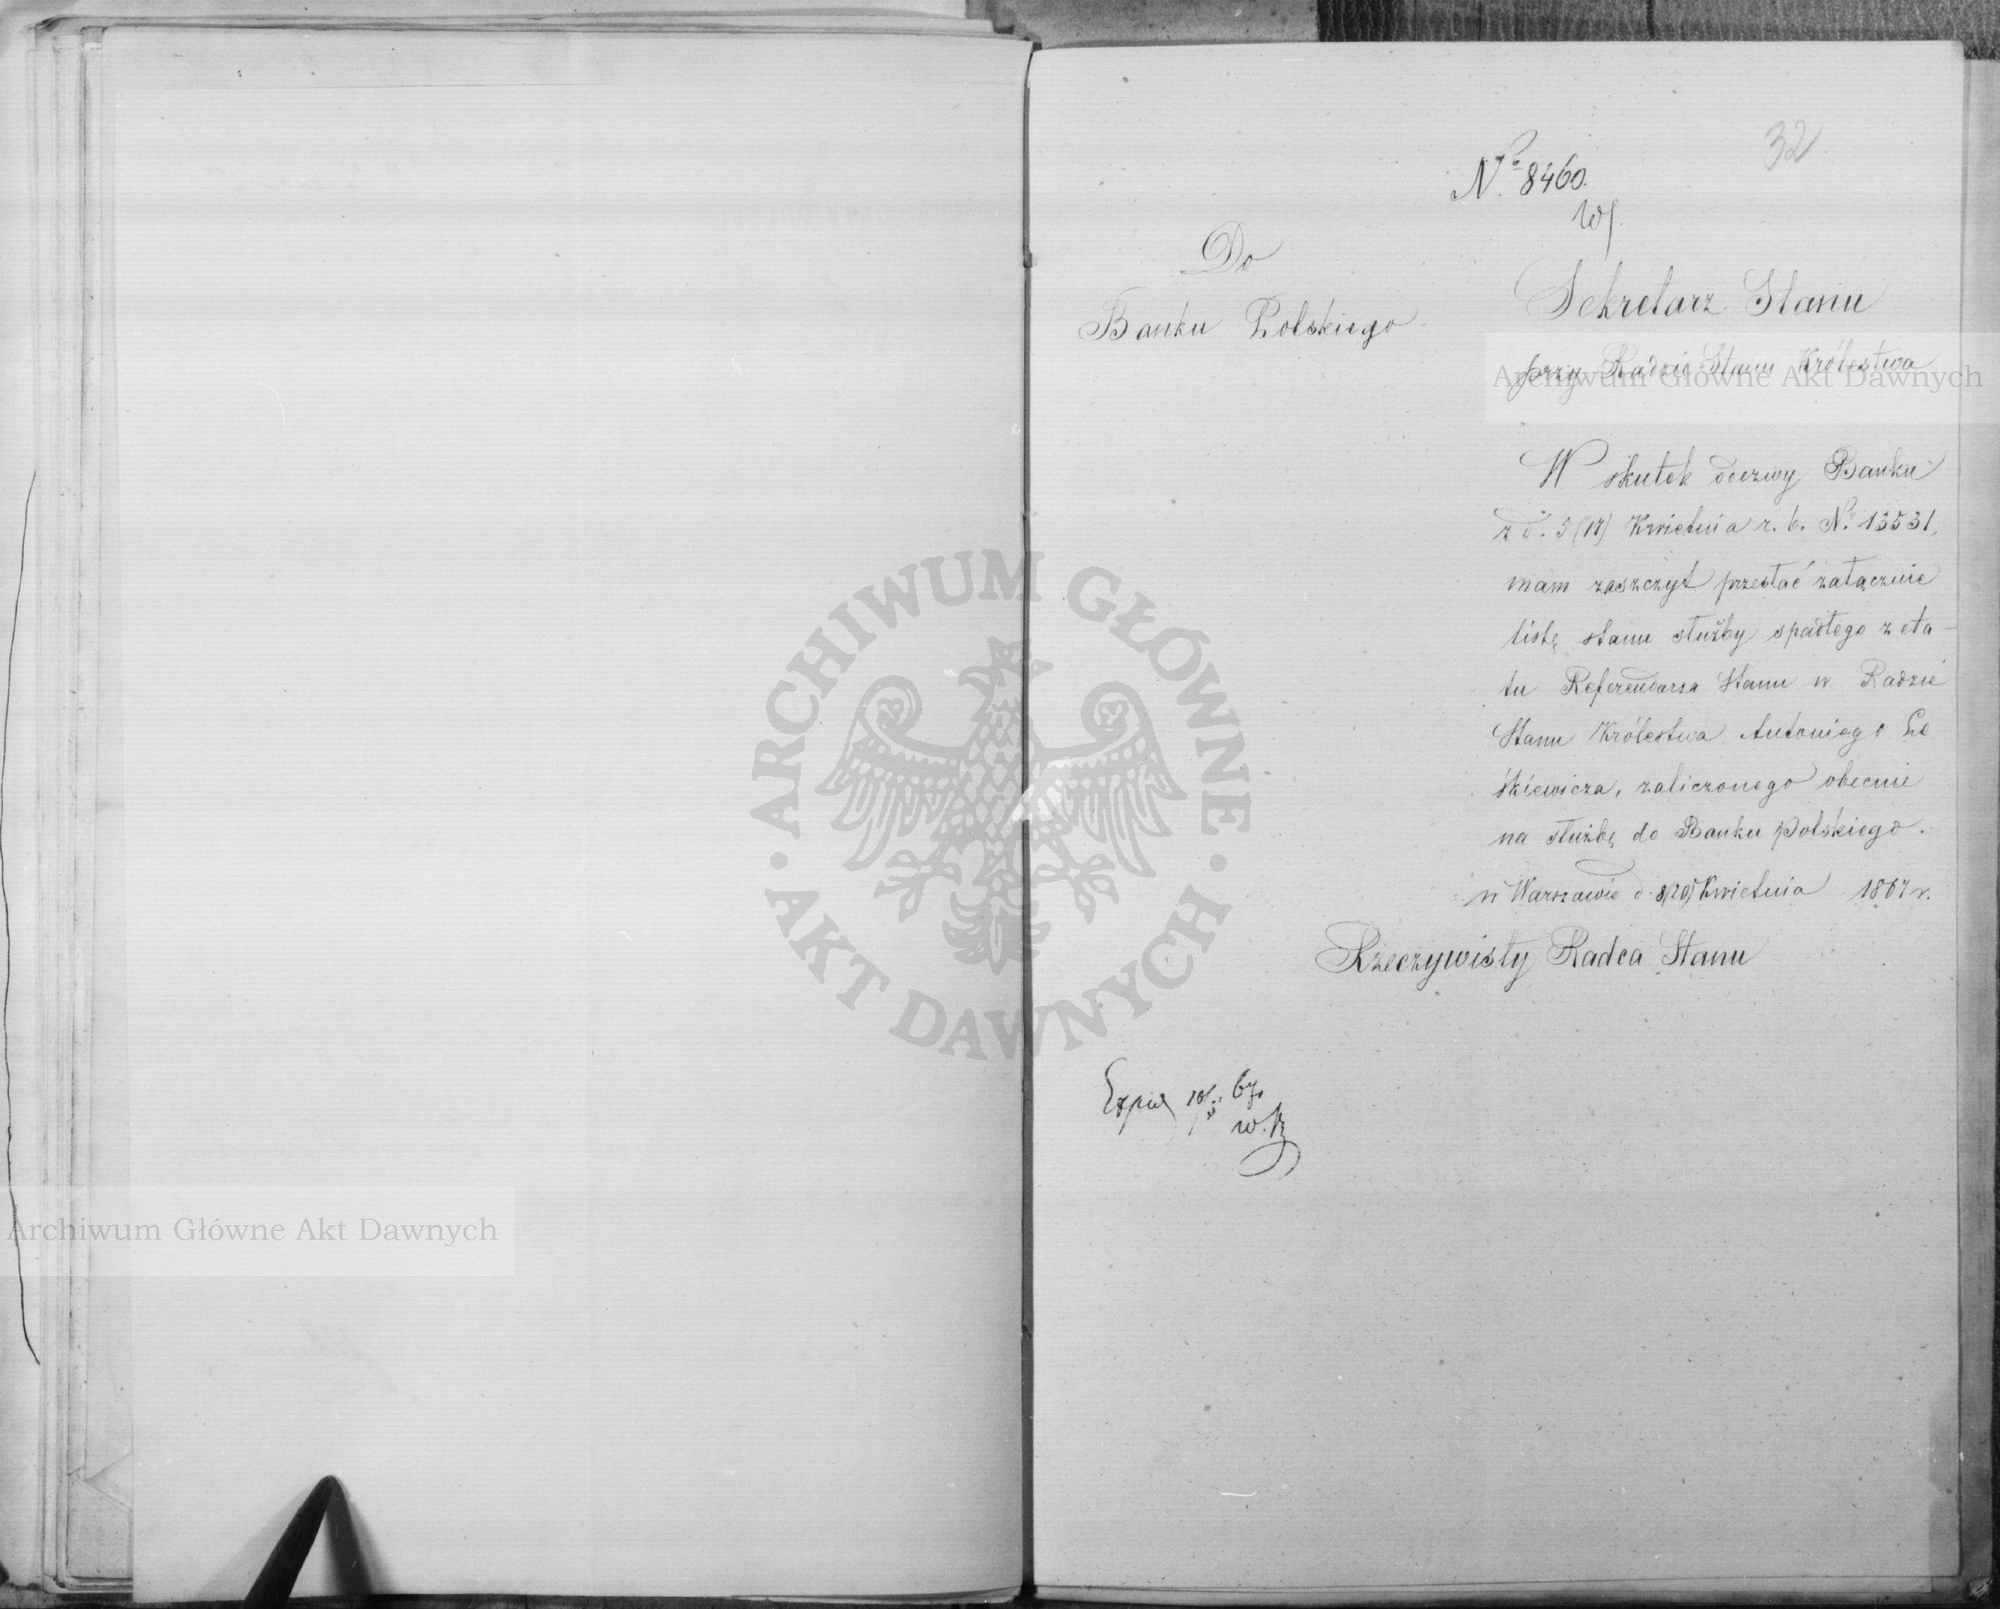 32
Nº 8460.
Do
Banku Polskiego
Sekretarz Stanu
przy Radzie Stanu Królestwa
W skutek odezwy Banku
z d. 5 (17) Kwietnia r. b. Nº 13531,
mam zaszczyt przesłać załącznie
listę stanu służby spadłego z eta-
tu Referendarza Stanu w Radzie
Stanu Królestwa Antoniego Le
śkiewicza, zaliczonego obecnie
na służbę do Banku Polskiego.
w Warszawie d. 8/20 Kwietnia 1867 r.
Rzeczywisty Radca Stanu
67
Archiwum Główne Akt Dawnych
Archiwum Główne Akt Dawnych
· ARCHIWUM GŁÓWNE · AKT DAWNYCH